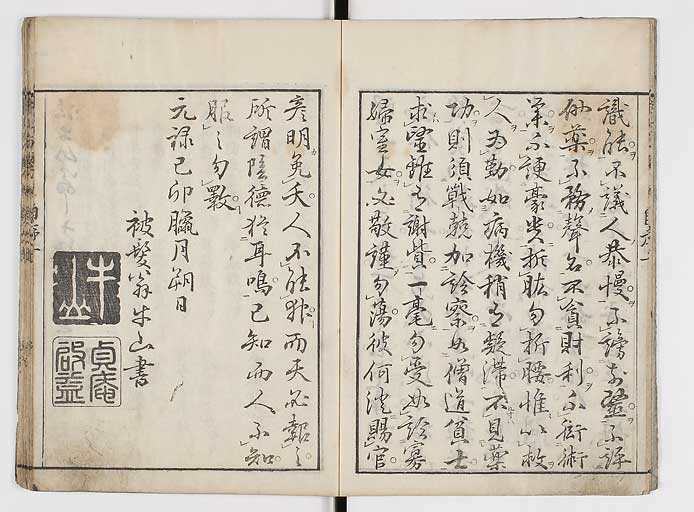 識能不議人恭慢不謗前醫不評
他藥不務聲名不貪財利不衒術
業不諛豪貴折肱勿折腰惟以救
人為勤如病機稍有凝滯不見藥
功則須戰兢加診察如僧道貧士
求醫雖有謝貲一毫勿受如診寡
婦室女必敬謹勿蕩彼何淫賜官
人不能非而天必報之
所謂陰德猶耳鳴己知而人不知
服之勿斁
元禄己卯臘月朔日
被髮翁牛山書
牛山
貞庵
啟益